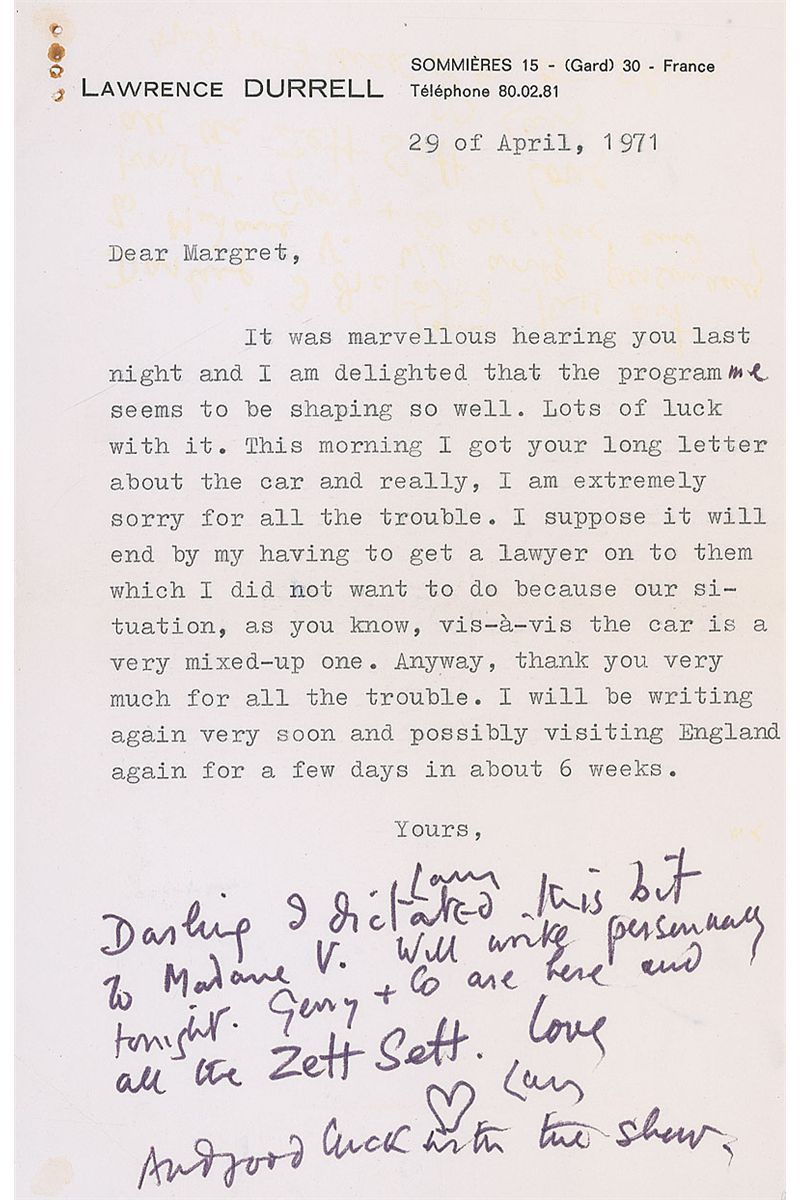 SOMMIÈRES 15 - (Gard) 30 - France
LAWRENCE DURRELL
Téléphone 80.02.81
29 of April, 1971
Dear Margret,
It was marvellous hearing you last
night and I am delighted that the programme
seems to be shaping so well. Lots of luck
with it. This morning I got your long letter
about the car and really, I am extremely
sorry for all the trouble. I suppose it will
end by my having to get a lawyer on to them
which I did not want to do because our si-
tuation, as you know, vis-à-vis the car is a
very mixed-up one. Anyway, thank you very
much for all the trouble. I will be writing
again very soon and possibly visiting England
again for a few days in about 6 weeks.
Yours,
Larry
Darling I dictated this bit
to Madame V. Will write personnally
tonight. Gerry + Co are here and
all the Zett Sett. Love
Larry
And good luck with the show.